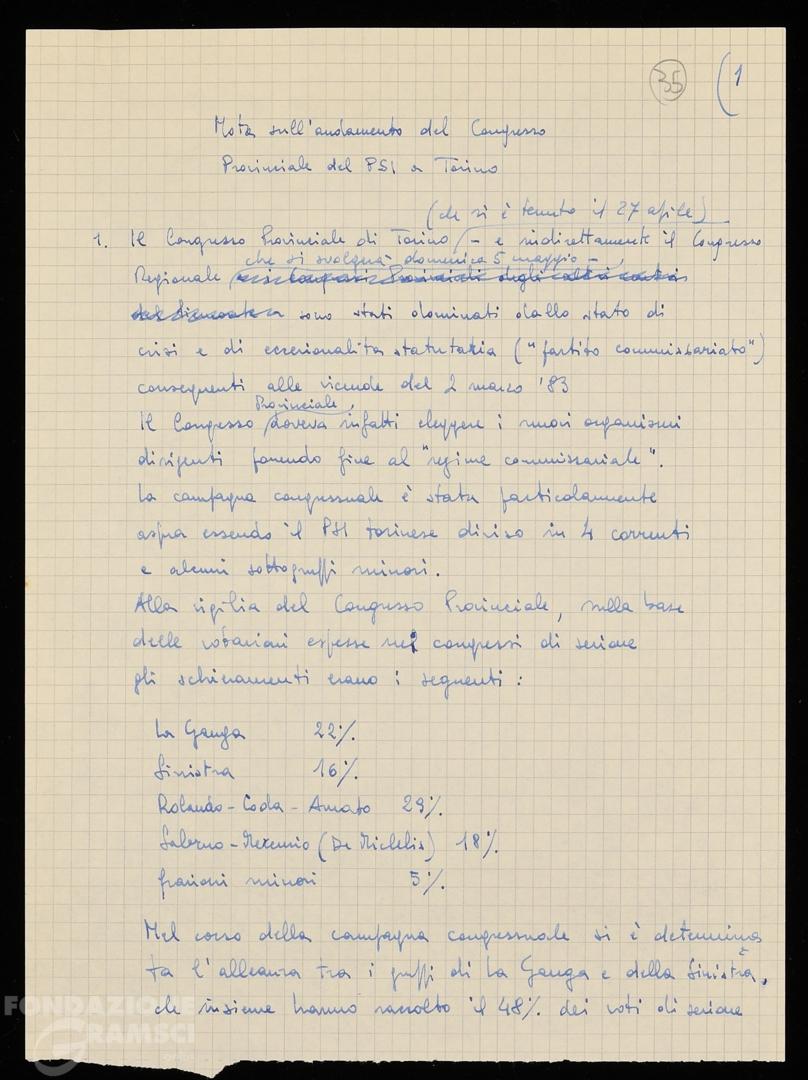 35
(1
Nota sull'andamento del Congresso
Provinciale del PSI a Torino
(che si è tenuto il 27 aprile)
1. Il Congresso Provinciale di Torino - e indirettamente il Congresso
che si svolgerà domenica 5 maggio -,
Regionale e i Congressi Provinciali degli altri centri
del Piemonte sono stati dominati dallo stato di
crisi e di eccezionalità statutaria ("partito commissariato")
conseguenti alle vicende del 2 marzo '83
Provinciale,
Il Congresso doveva infatti eleggere i nuovi organismi
dirigenti ponendo fine al "regime commissariale".
La campagna congressuale è stata particolarmente
aspra essendo il PSI torinese diviso in 4 correnti
e alcuni sottogruppi minori.
Alla vigilia del Congresso Provinciale, sulla base
delle votazioni espresse nei congressi di sezione
gli schieramenti erano i seguenti:
La Ganga 22%.
Sinistra 16%.
Rolando-Coda-Amato 29%.
Salerno-Mezemio (De Michelis) 18%.
frazioni minori 5%.
Nel corso della campagna congressuale si è determina
ta l'alleanza tra i gruppi di La Ganga e della Sinistra,
che insieme hanno raccolto il 48%. dei voti di sezione
FONDAZIONE
GRAMSCI